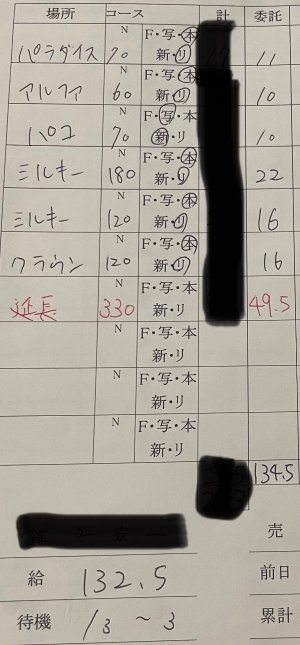 場所 コース 計 委託
パラダイス N 70 F・写・本 新・リ 11
アルファ N 60 F・写・本 新・リ 10
パコ N 70 F・写・本 新・リ 10
ミルキー N 180 F・写・本 新・リ 22
ミルキー N 120 F・写・本 新・リ 16
クラウン N 120 F・写・本 新・リ 16
延長 N 330 F・写・本 新・リ 49.5
N F・写・本 新・リ
N F・写・本 新・リ
N F・写・本 新・リ
134.5
売
給 132.5 前日
待機 13 ~ 3 累計